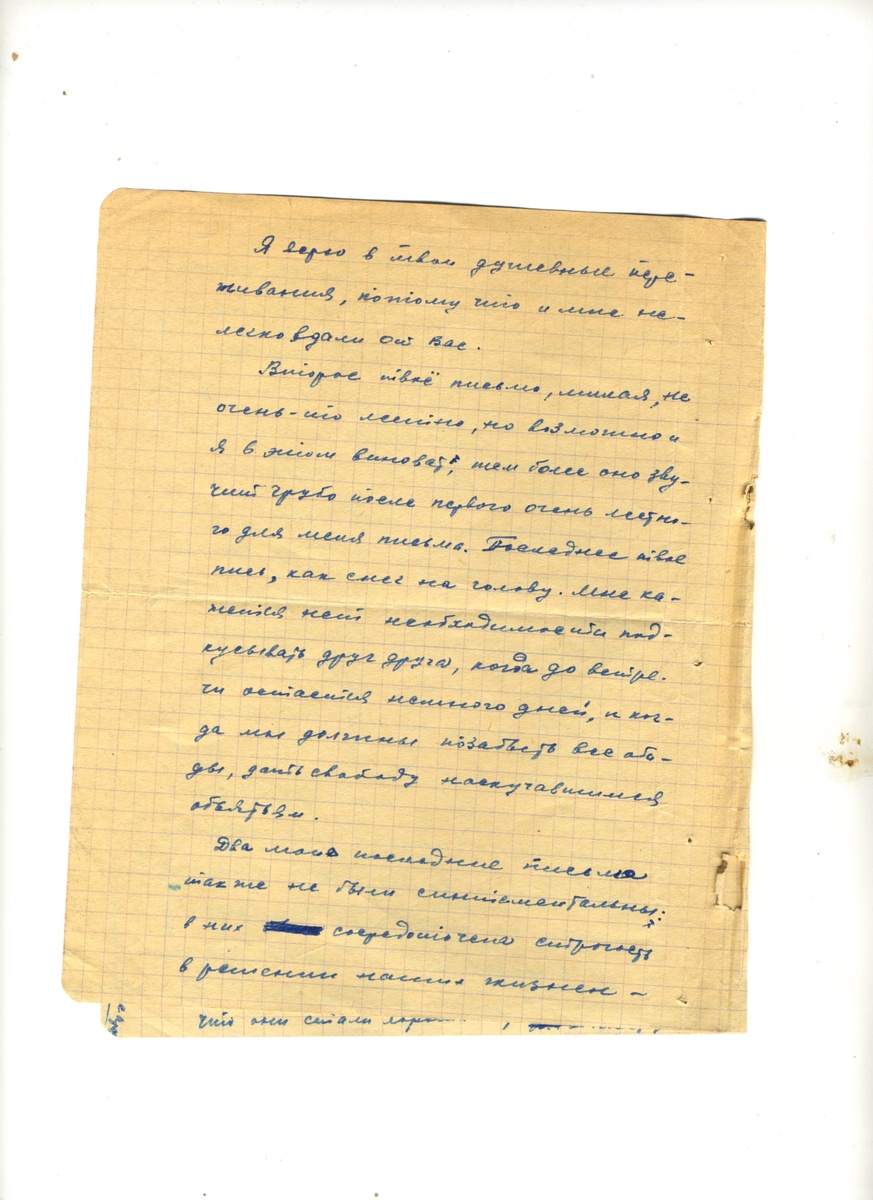 Я верю в твои душевные пере-
живания, потому что и мне не-
легко вдали от Вас.
Второе твоё письмо, милая, не
очень-то лестно, но возможно и
я в этом виноват, тем более оно зву-
чит грубо после первого очень лестно-
го для меня письма. Последнее твое
пись, как снег на голову. Мне ка-
жется нет необходимости под-
кусывать друг друга, когда до встре-
чи остается немного дней, и ког-
да мы должны позабыть все оби-
ды, дать свободу наскучавшимся
объятьям.
Два моие последние письма
также не были синтементальны:
в них сосредоточена строгость
в решении наших жизнен-
что они стали